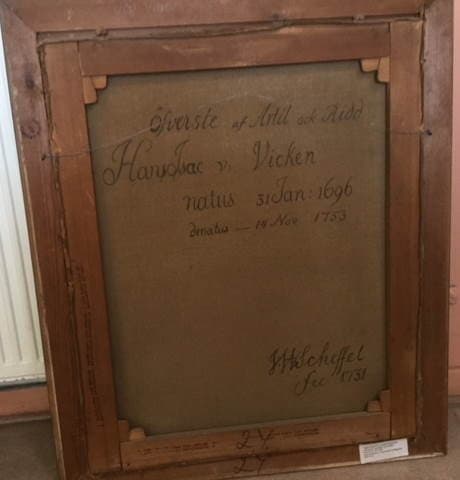 Öfverste af Artil och Ridd
Hans Isac v. Vicken
natus 31 Jan: 1696
denatus — 14 Nov 1753
JHScheffel
fec 1731
24
24